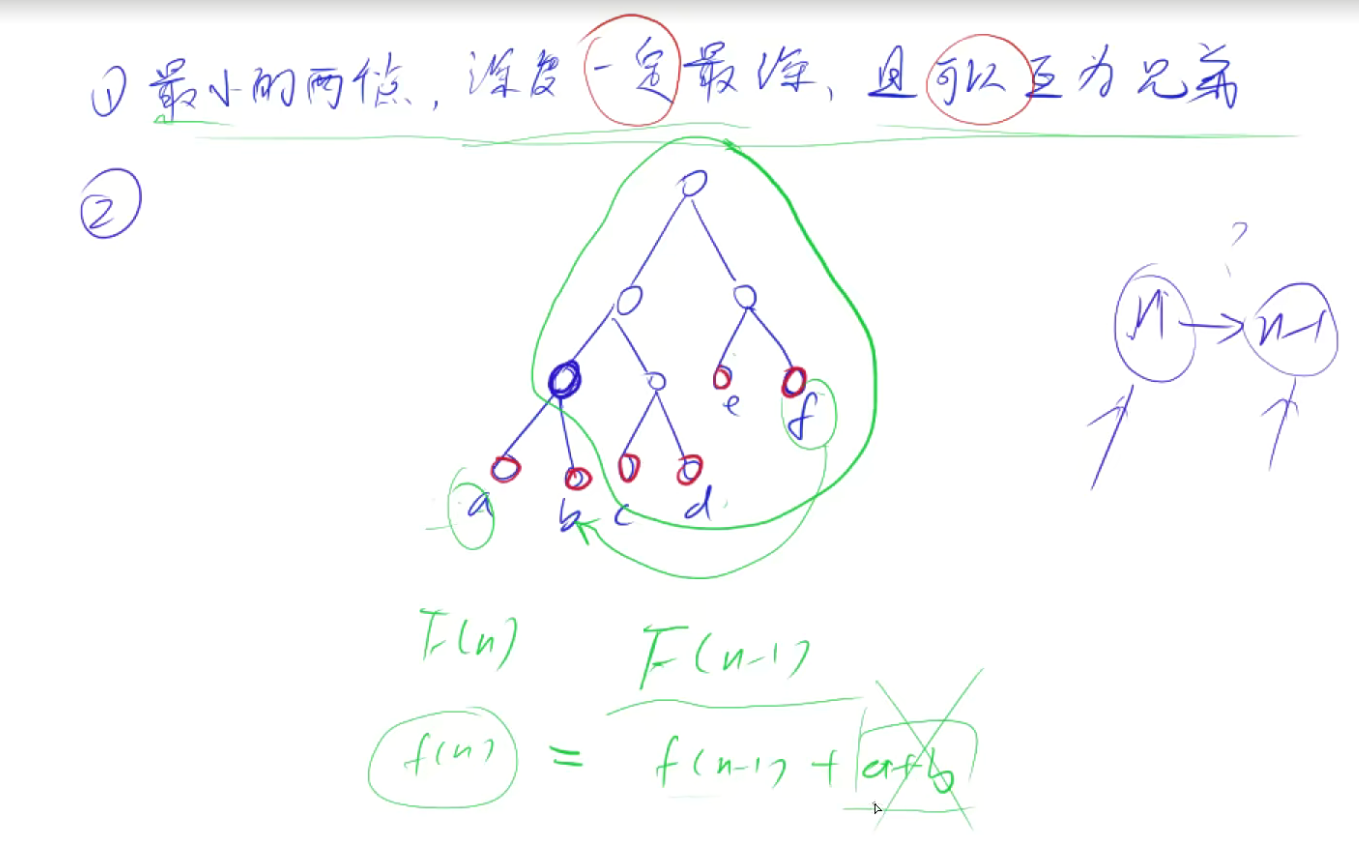 ① 最小的两个点，深度一定最深、且可以互为兄弟
②
?
n → n-1
e
f
a
b
c
d
F(n) F(n-1)
f(n) = f(n-1) + a+b